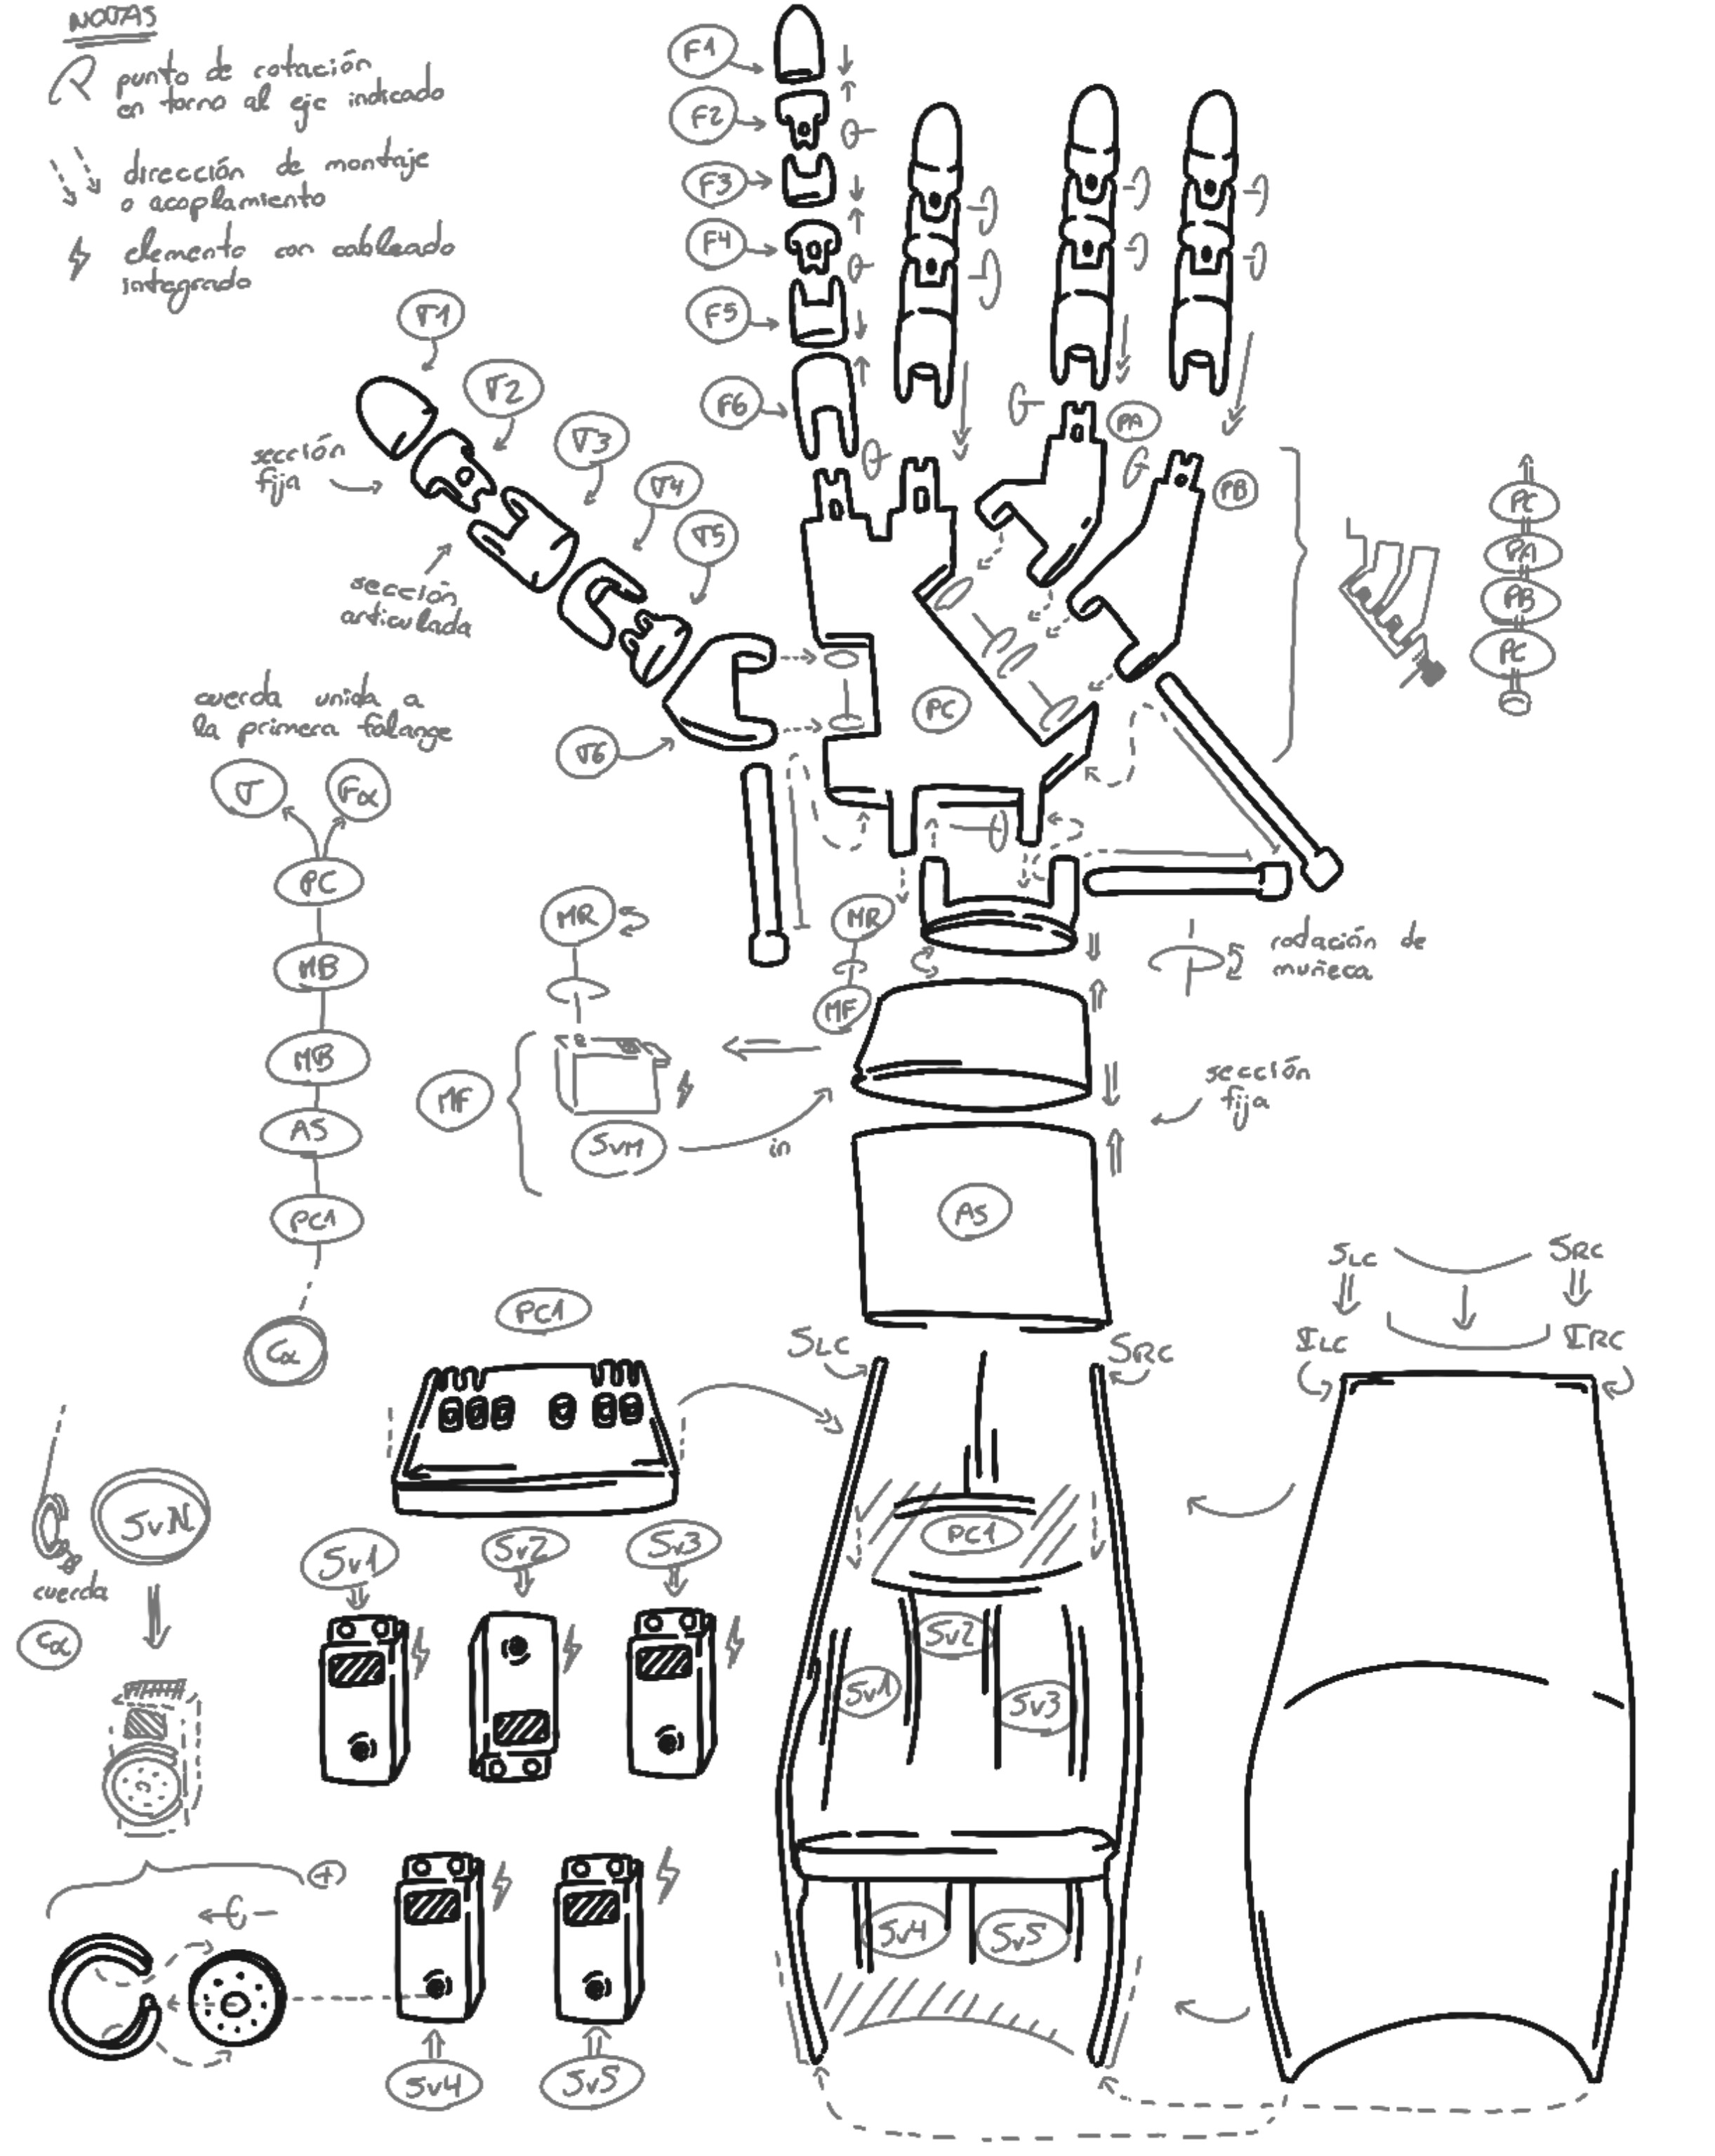 NOTAS
R punto de rotación
en torno al eje indicado
dirección de montaje
o acoplamiento
elemento con cableado
integrado
F1
F2
F3
F4
F5
F6
T1
T2
T3
T4
T5
T6
sección
fija
sección
articulada
PA
PB
PC
PC
PA
PB
PC
cuerda unida a
la primera falange
T
Fα
PC
MB
MB
AS
PC1
Cα
MR
MR
MF
rodación de
muñeca
MF
SVM
in
sección
fija
AS
PC1
SLC
SRC
SLC
SRC
ILC
IRC
SVN
cuerda
Cα
Sv1
Sv2
Sv3
PC1
Sv2
Sv1
Sv3
Sv4
Sv5
+
Sv4
Sv5